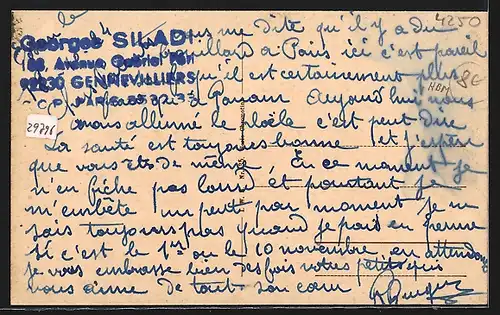 le
me dite qu'il y a du
4250
Georges SILADI
brouillard a Paris ici c'est pareil
86, Avenue Gabriel Péri
qu'il est certainement plus
8€
92230 GENNEVILLIERS
HBM
a Pantin Aujourd'hui nous
29796
avons allumé le poêle c'est peut dire
La santé est toujours bonne et j'espère
que vous êtes de même. En ce moment je
n'en fiche pas lourd et pourtant je
m'embête un petit peu par moment je ne
sais toujours pas quand je pars en perme
si c'est le 1er ou le 10 novembre en attendant
je vous embrasse bien des fois votre petit qui
vous aime de tout son coeur